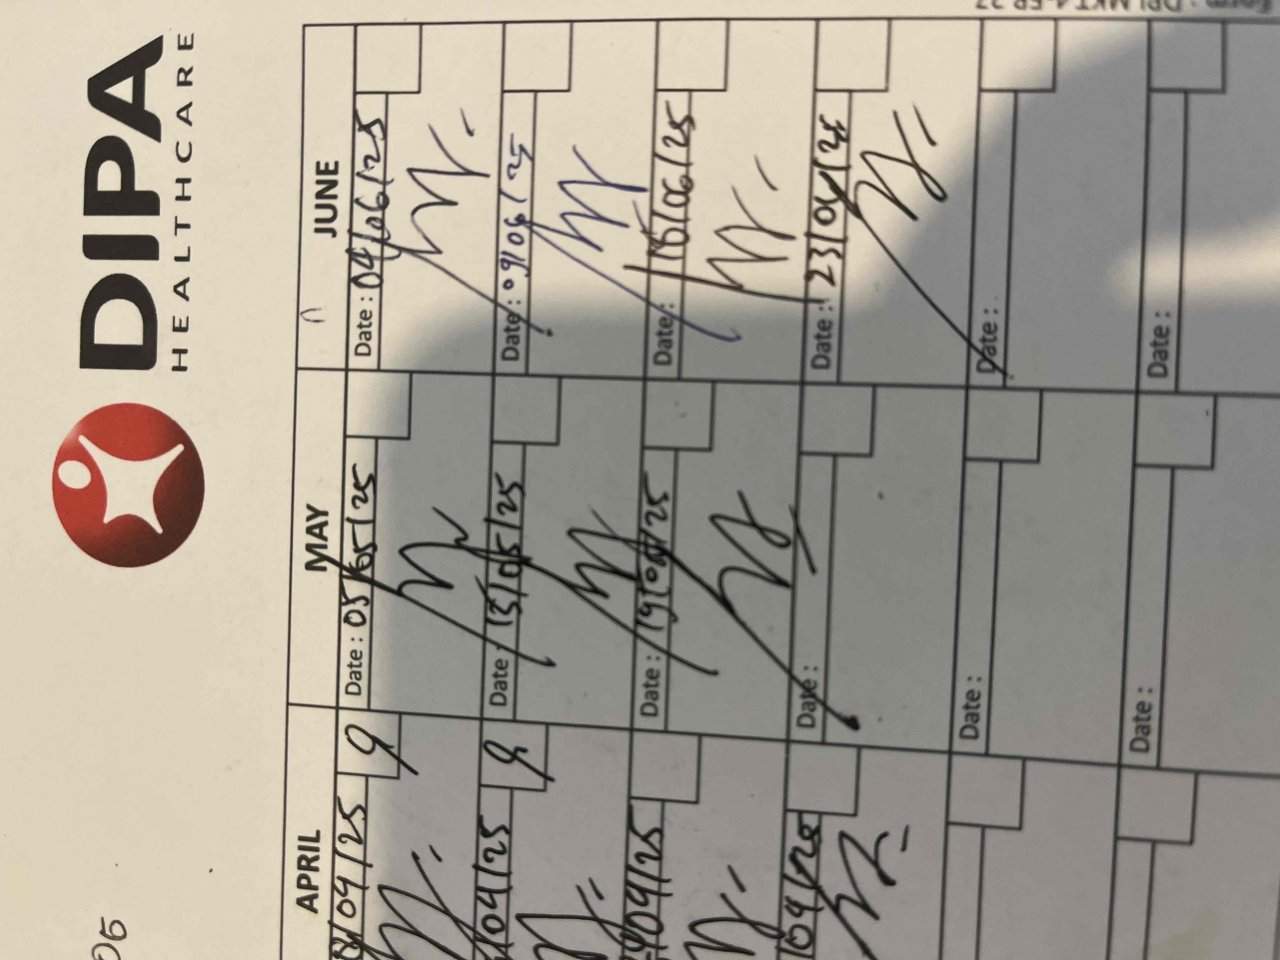 DIPA
HEALTHCARE
05
APRIL
MAY
JUNE
/04/25
9
Date : 05/05/25
Date : 04/06/25
/04/25
9
Date : 13/05/25
Date : 09/06/25
/04/25
Date : 19/05/25
Date : 16/06/25
/04/25
Date :
Date : 23/06/25
Date :
Date :
Date :
Date :